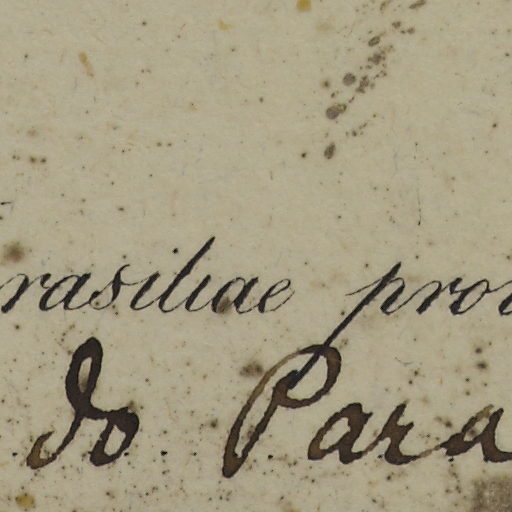 rasiliae prov
do Para